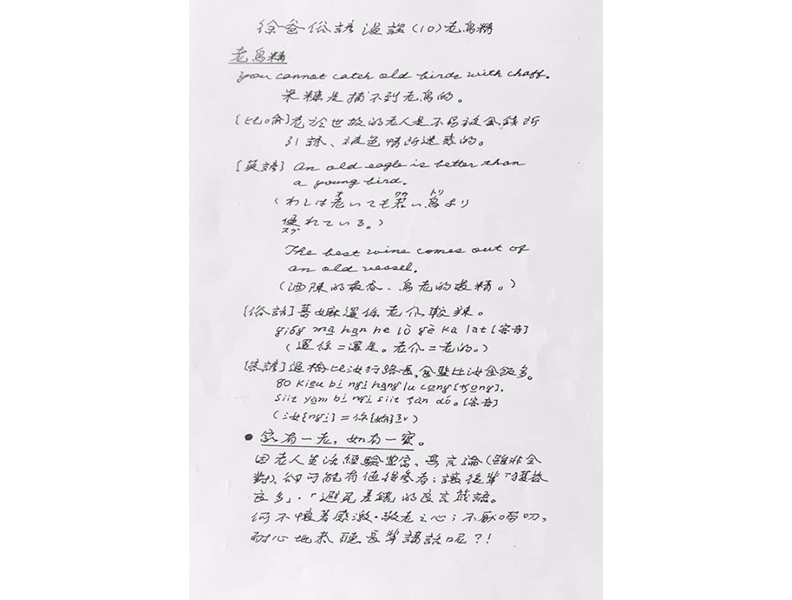 徐爸俗諺漫談(10)老鳥精
老鳥精
you cannot catch old birds with chaff.
米糠是捕不到老鳥的。
[比喻]老於世故的老人是不易被金錢所
引誘、被色情所迷惑的。
[英諺] An old eagle is better than
a young bird.
(わしは老いても若い鳥より
オ ワカ トリ
優れている。)
スグ
The best wine comes out of
an old vessel.
(酒陳的最香、鳥老的最精。)
[俗話]薑嫲還係老介較辣。
gióg ma han he lò gè ka lat [客音]
(還係=還是。老介=老的。)
[客諺]過橋比汝行路長,食鹽比汝食飯多。
go kieu bi ngi hang lu cong [tsong],
siit yam bi ngi siit fan dó。[客音]
(汝[ngi]=你[妳])
●家有一老,如有一寶。
因老人生活經驗豐富、其言論(雖非全
對)、卻可能有值得參考;讓後輩「獲益
良多」、「避免差錯」的良言箴語。
何不懷著感激・敬老之心;不厭嘮叨,
耐心地恭聽長輩講話呢?!